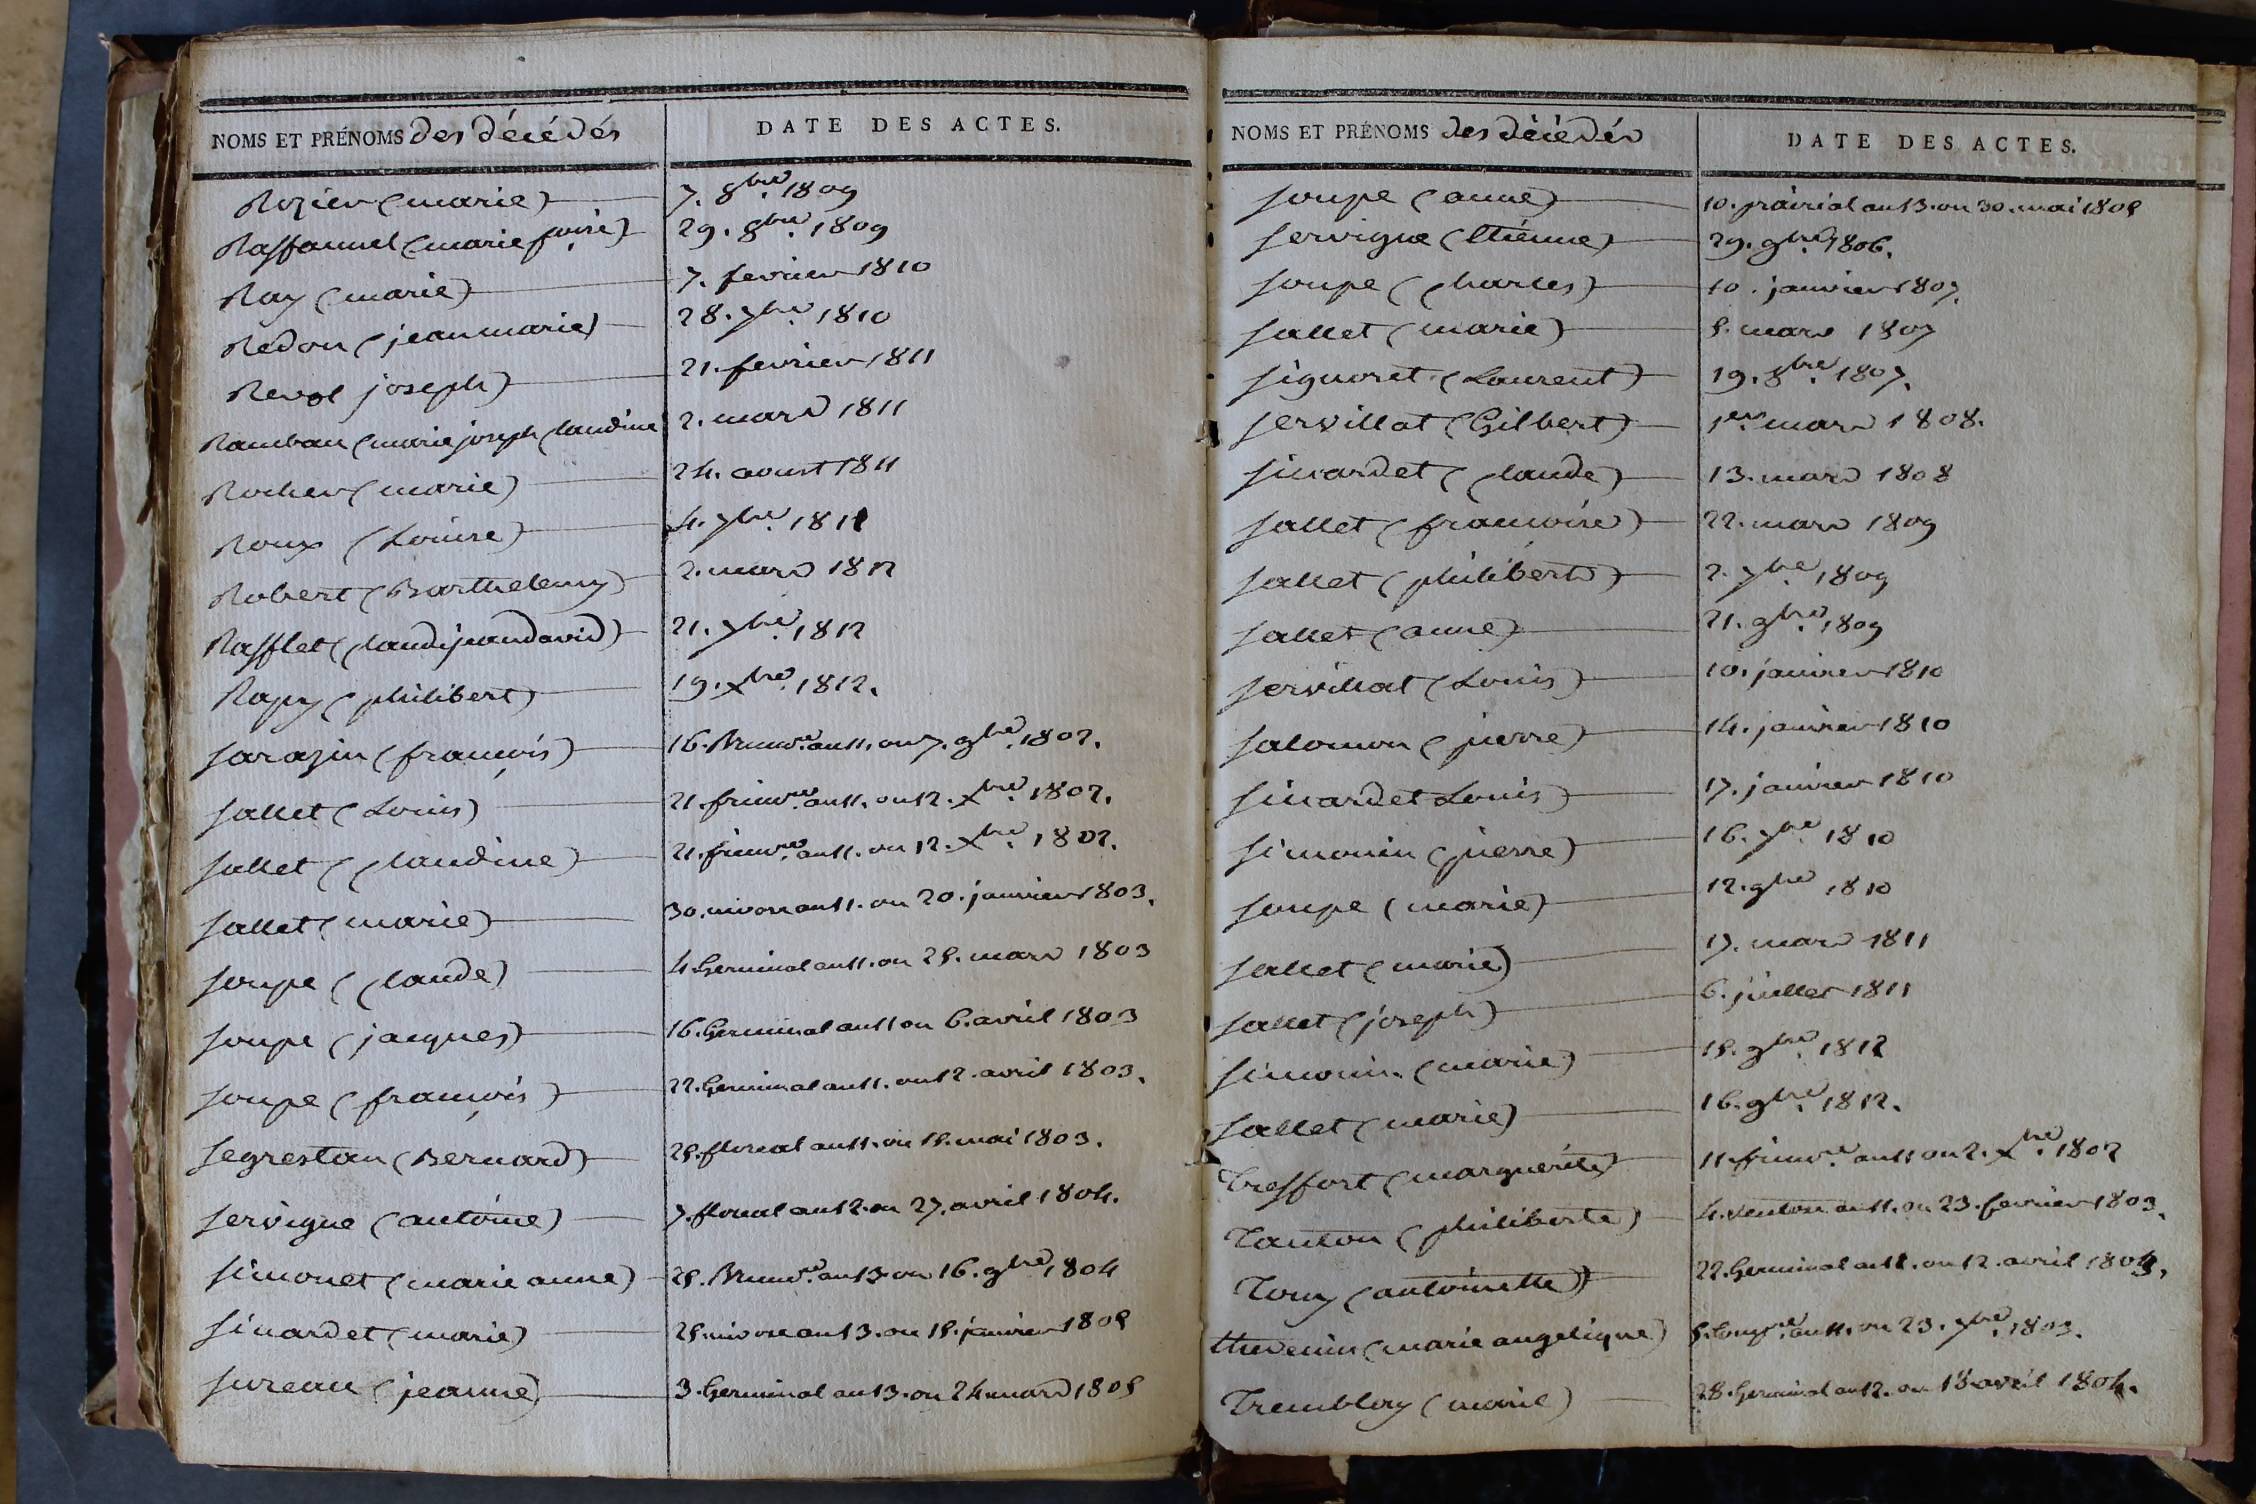 NOMS ET PRÉNOMS des décédés DATE DES ACTES.
Rozier (marie) 7. 8bre. 1809
Raffannel (marie foise) 29. 8bre. 1809
Ray (marie) 7. fevrier 1810
Redon (jean marie) 28. 7bre. 1810
Revol joseph) 21. fevrier 1811
Rambau (marie joseph Claudine 2. mars 1811
Rocher (marie) 24. aoust 1811
Roux (Louise) 4. 7bre. 1811
Robert (Barthelemy) 2. mars 1812
Rafflet (Claude jean david) 21. 7bre. 1812
Rapy (philibert) 19. Xbre. 1812.
Sarazin (francois) 16. Brumre. an 11. ou 7. 9bre. 1802.
Sallet (Louis) 21. frimre. an 11. ou 12. Xbre. 1802.
Sallet (Claudine) 21. frimre. an 11. ou 12. Xbre. 1802.
Sallet (marie) 30. nivose an 11. ou 20. janvier 1803.
Soupe (Claude) 4. Germinal an 11. ou 25. mars 1803
Soupe (jacques) 16. Germinal an 11 ou 6. avril 1803
Soupe (francois) 22. Germinal an 11. ou 12. avril 1803.
Segrestan (Bernard) 25. floreal an 11. ou 15. mai 1803.
Servigne (antoine) 7. floreal an 12. ou 27. avril 1804.
Simonet (marie anne) 25. Brumre. an 13. ou 16. 9bre. 1804
Sinardet (marie) 25. nivose an 13. ou 15. janvier 1805
Sureau (jeanne) 3. Germinal an 13. ou 24 mars 1805
NOMS ET PRÉNOMS des décédés DATE DES ACTES.
Soupe (anne) 10. prairial an 13. ou 30. mai 1805
Servigne (Etienne) 29. 9bre. 1806.
Soupe (Charles) 10. janvier 1807.
Sallet (marie) 5. mars 1807
Signoret (Laurent) 19. 8bre. 1807.
Servillat (Gilbert) 1er. mars 1808.
Sinardet (Claude) 13. mars 1808
Sallet (francoise) 22. mars 1809
Sallet (philiberte) 2. 7bre. 1809
Sallet (anne) 21. 9bre. 1809
Servillat (Louis) 10. janvier 1810
Salomon (pierre) 14. janvier 1810
Sinardet Louis) 17. janvier 1810
Simonin (pierre) 16. 7bre. 1810
Soupe (marie) 12. 9bre 1810
Sallet (marie) 17. mars 1811
Sallet (joseph) 6. juillet 1811
Simonin (marie) 15. 9bre. 1812
Sallet (marie) 16. 9bre. 1812.
Treffort (marguerite) 11. frimre. an 11 ou 2. Xbre. 1802
Tanton (philiberte) 4. ventose an 11. ou 23. fevrier 1803.
Tony (antoinette) 22. Germinal an 11. ou 12. avril 1803.
thevenin (marie angelique) an 11. ou 23. 7bre. 1803.
Tremblay (marie) 28. Germinal an 12. ou 18 avril 1804.